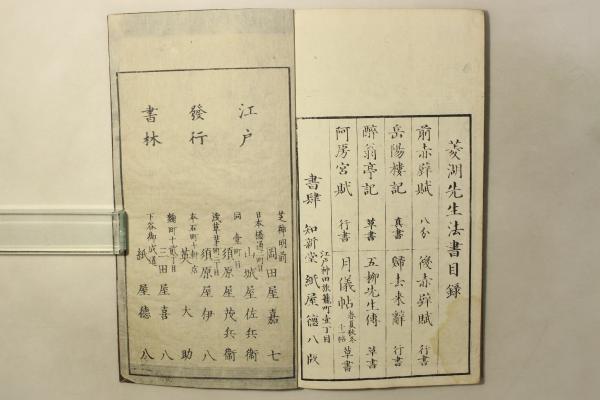 菱湖先生法書目録
前赤壁賦 八分 後赤壁賦 行書
岳陽樓記 真書 歸去来辭 行書
醉翁亭記 草書 五柳先生傳 草書
阿房宮賦 行書 月儀帖 春夏秋冬十二帖 草書
江戸神田旅籠町壹丁目
書肆 知新堂 紙屋德八版
江戸
發行
書林
芝神明前
岡田屋嘉七
日本橋通二町目
山城屋佐兵衞
同壹町目
須原屋茂兵衞
淺草茅町二丁目
須原屋伊八
本石町十軒店
英大助
麹町十二丁目
三田屋喜八
下谷御成道
紙屋德八